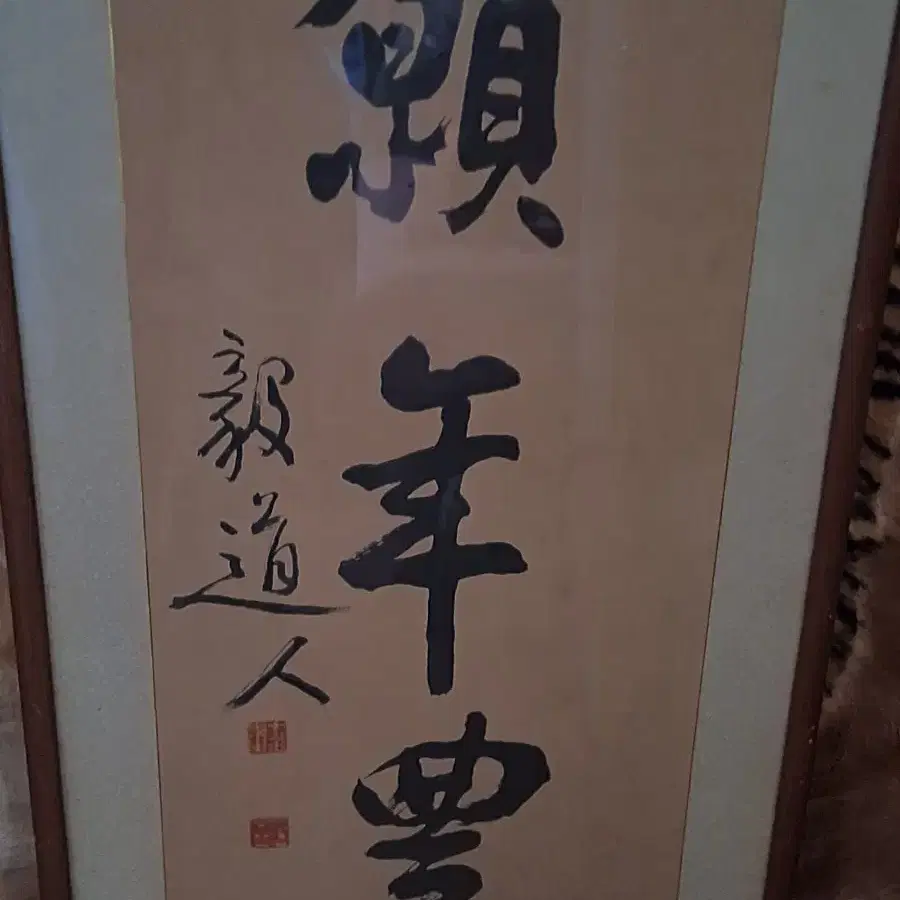 願年豊
毅道人